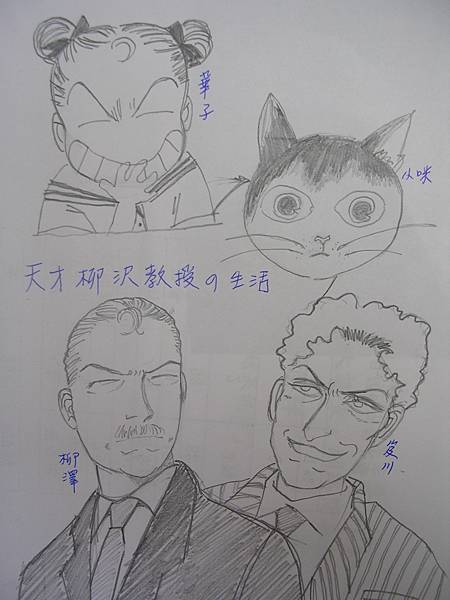 華子
小咪
天才柳沢教授の生活
柳澤